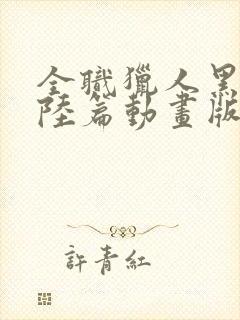 全職獵人黑
陸篇動畫版
許青紅